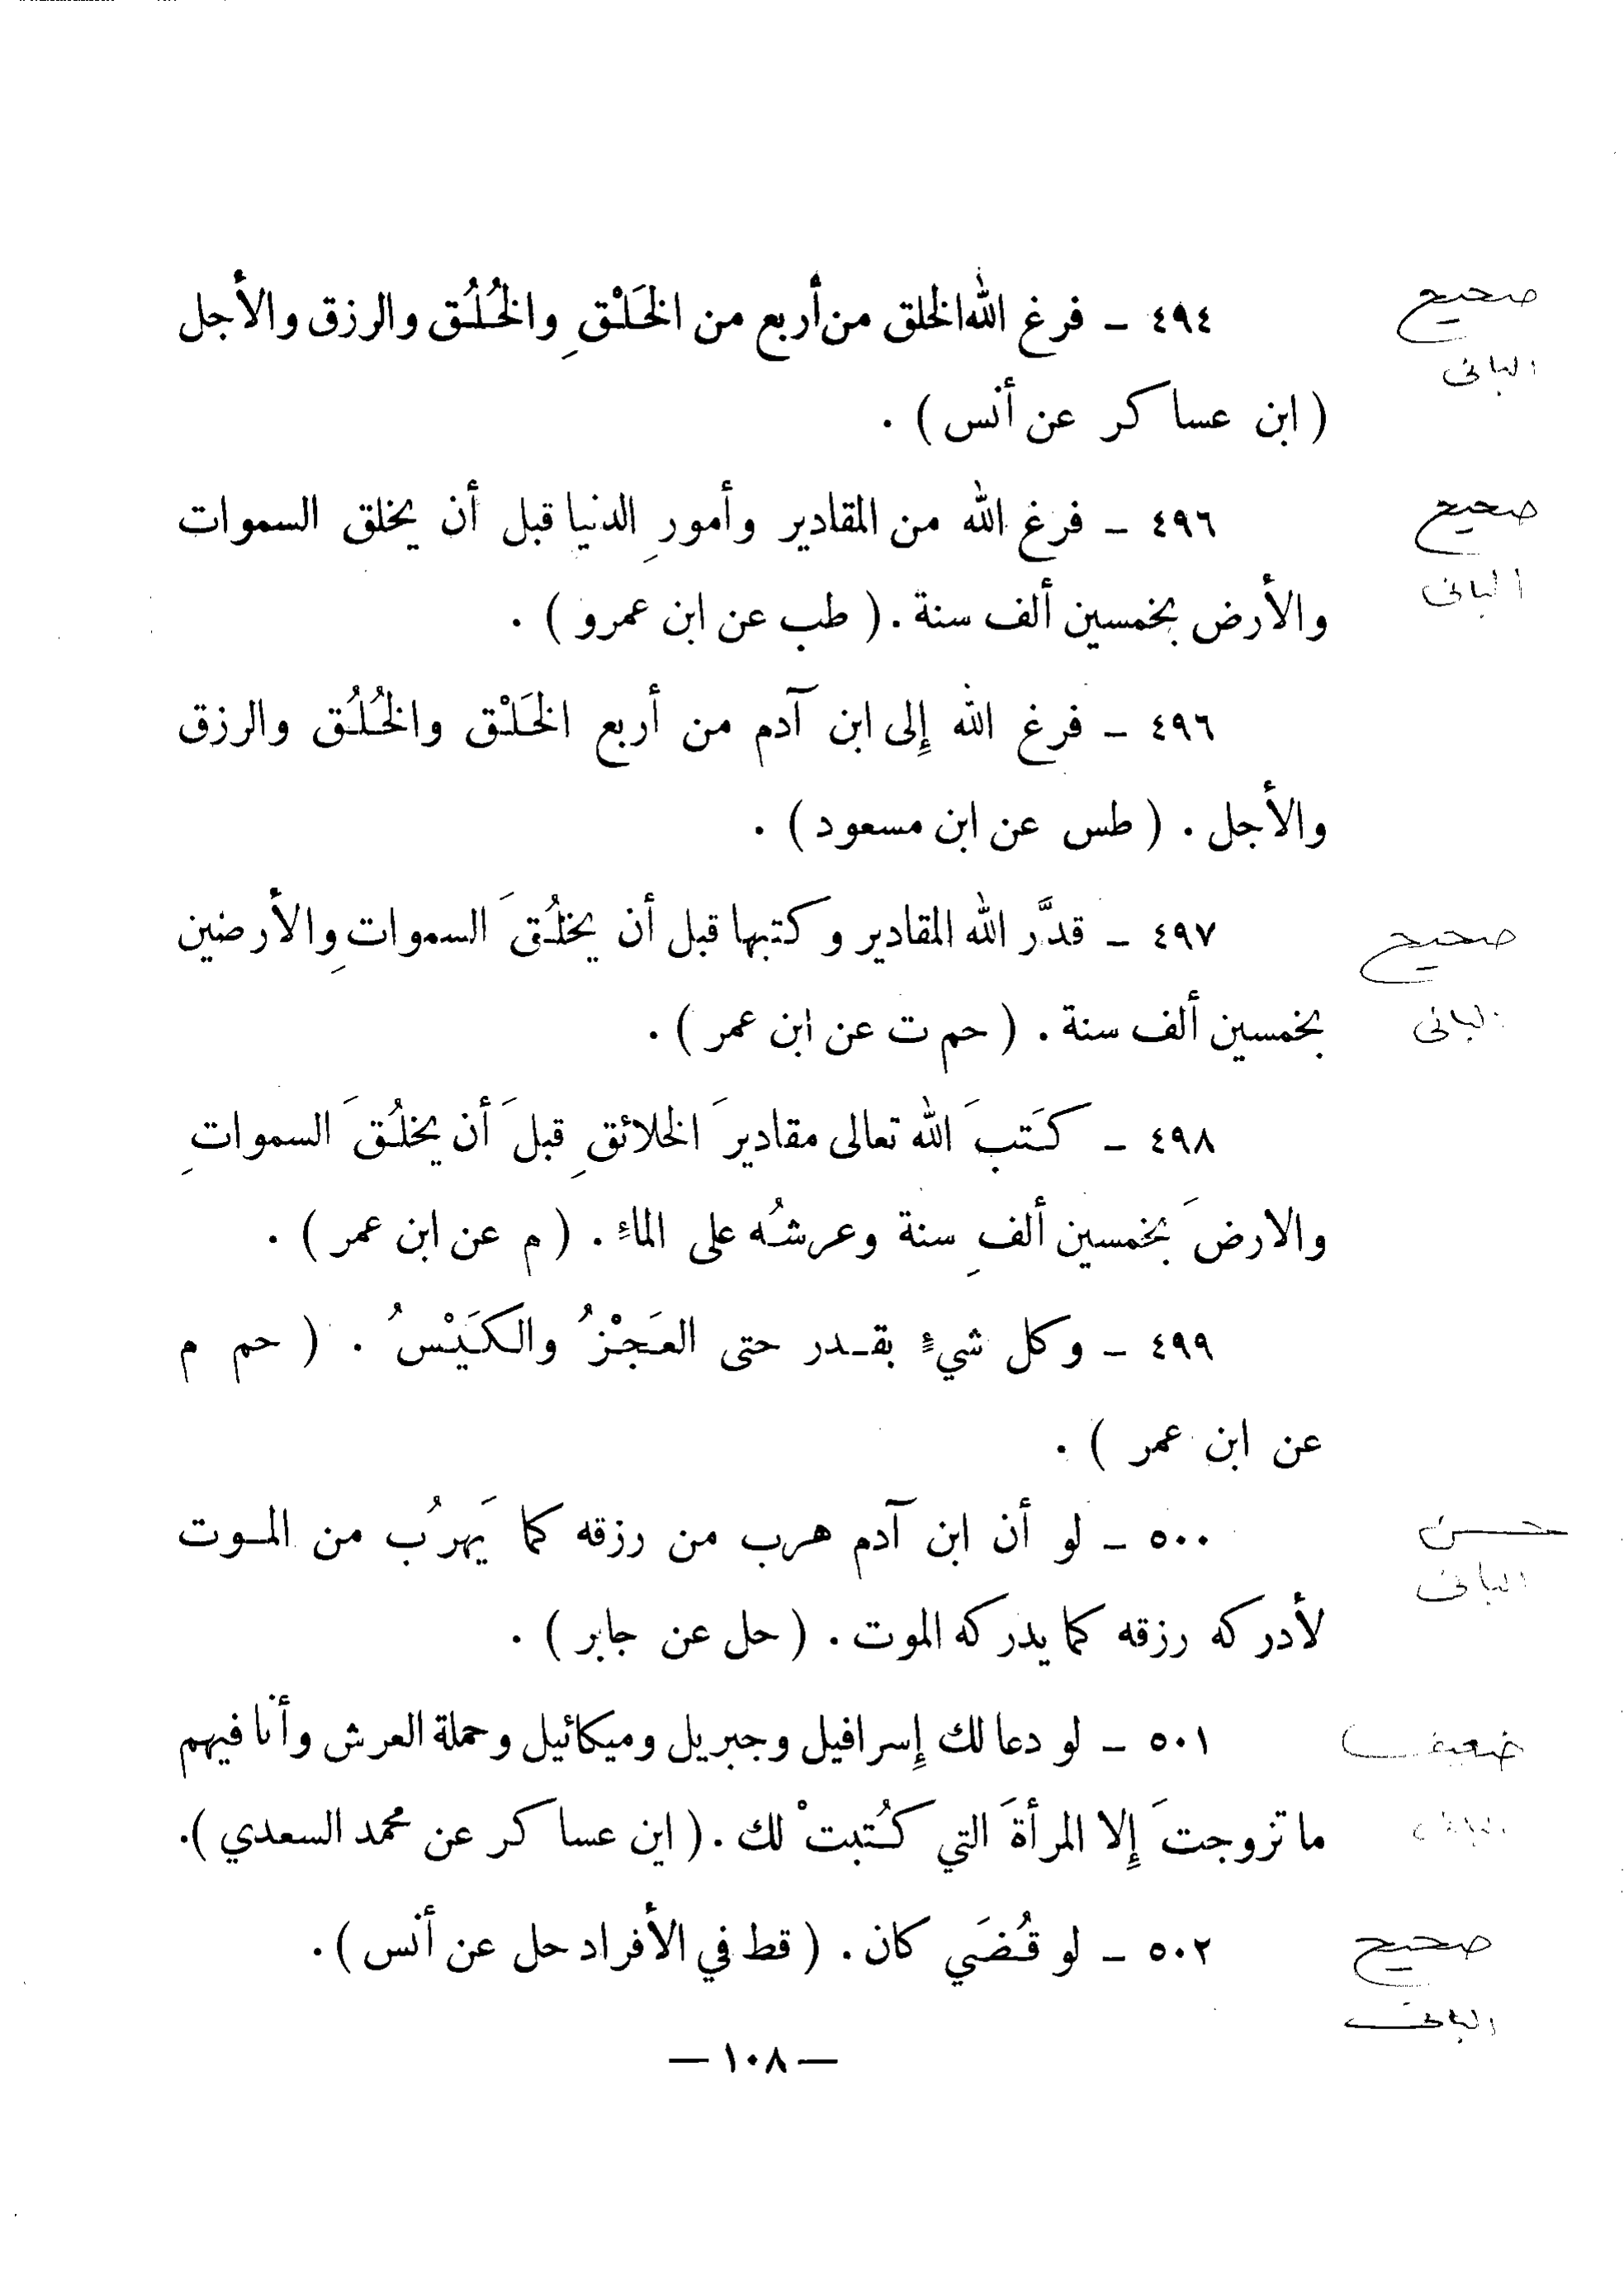 صحيح
البانى
٤٩٤ ـ فرغ الله الخلق من أربع من الخَلْقِ والخُلُق والرزق والأجل
( ابن عساكر عن أنس ) .
صحيح
البانى
٤٩٦ ـ فرغ الله من المقادير وأمورِ الدنيا قبل أن يخلق السموات
والأرض بخمسين ألف سنة . ( طب عن ابن عمرو ) .
٤٩٦ ـ فرغ الله إلى ابن آدم من أربع الخَلْق والخُلُق والرزق
والأجل . ( طس عن ابن مسعود ) .
صحيح
البانى
٤٩٧ ـ قدَّر الله المقادير وكتبها قبل أن يخلُقَ السمواتِ والأرضين
بخمسين ألف سنة . ( حم ت عن ابن عمر ) .
٤٩٨ ـ كَتبَ الله تعالى مقاديرَ الخلائقِ قبلَ أن يخلُقَ السمواتِ
والارضَ بخمسين ألفِ سنة وعرشُه على الماء . ( م عن ابن عمر ) .
٤٩٩ ـ وكل شيءٍ بقـدر حتى العَجْزُ والكَيْسُ . ( حم م
عن ابن عمر ) .
حسن
البانى
٥٠٠ ـ لو أن ابن آدم هرب من رزقه كما يَهربُ من المـوت
لأدركه رزقه كما يدركه الموت . ( حل عن جابر ) .
ضعيف
٥٠١ ـ لو دعا لك إسرافيل وجبريل وميكائيل وحملة العرش وأنا فيهم
ما تزوجتَ إلا المرأةَ التي كُتبتْ لك . ( اين عساكر عن محمد السعدي ) .
صحيح
البانى
٥٠٢ ـ لو قُضَي كان . ( قط في الأفراد حل عن أنس ) .
— ١٠٨ —